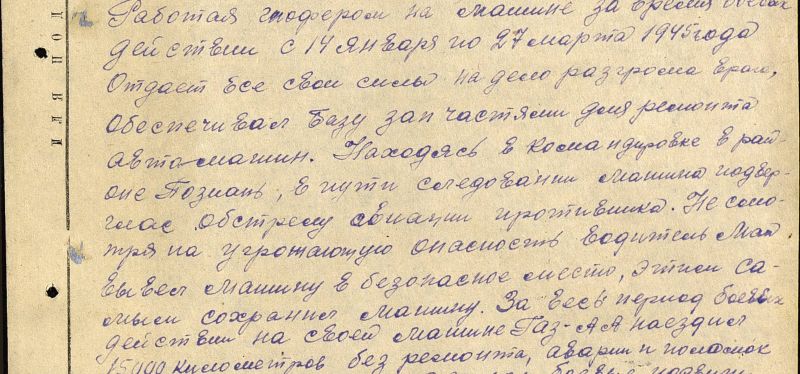 Работая шофером на машине за время боевых
действии с 14 января по 27 марта 1945 года
Отдает все свои силы на дело разгрома врага,
обеспечивал базу зап частями для ремонта
автомашин. Находясь в командировке в рай-
оне Познань, в пути следовании машина подвер-
глас обстрелу авиации противника. Не смо-
тря на угрожающую опасность водитель
вывел машину в безопасное место, этим са-
мым сохранил машину. За весь период боевых
действии на своей машине Газ-АА наездил
15000 километров без ремонта, аварии и поломок
боевые